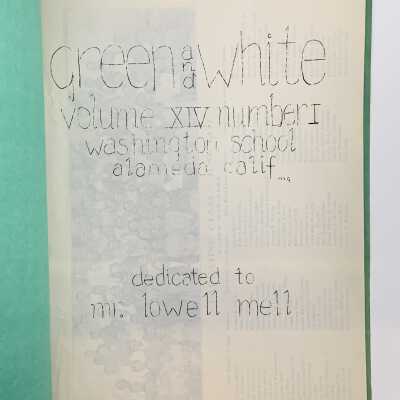 green and white
volume XIV number I
washington school
alameda calif
dedicated to
mr. lowell mell